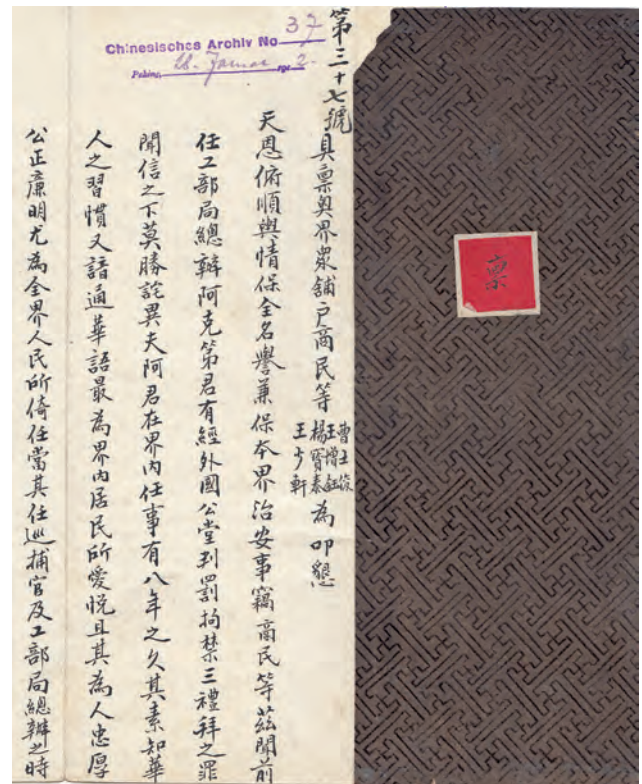 Chinesisches Archiv No 37
Peking, Januar 191 2.
第三十七號
禀
具禀奧界衆舖户商民等
王增鈺
楊寶泰
王少軒
為叩懇
天恩俯順輿情保全名譽兼保本界治安事竊商民等茲聞前
任工部局總辦阿克第君有經外國公堂判罰拘禁三禮拜之罪
聞信之下莫勝詫異夫阿君在界内任事有八年之久其素知華
人之習慣又諳通華語最為界内居民所愛悦且其為人忠厚
公正廉明尤為全界人民所倚任當其任巡捕官及工部局總辦之時